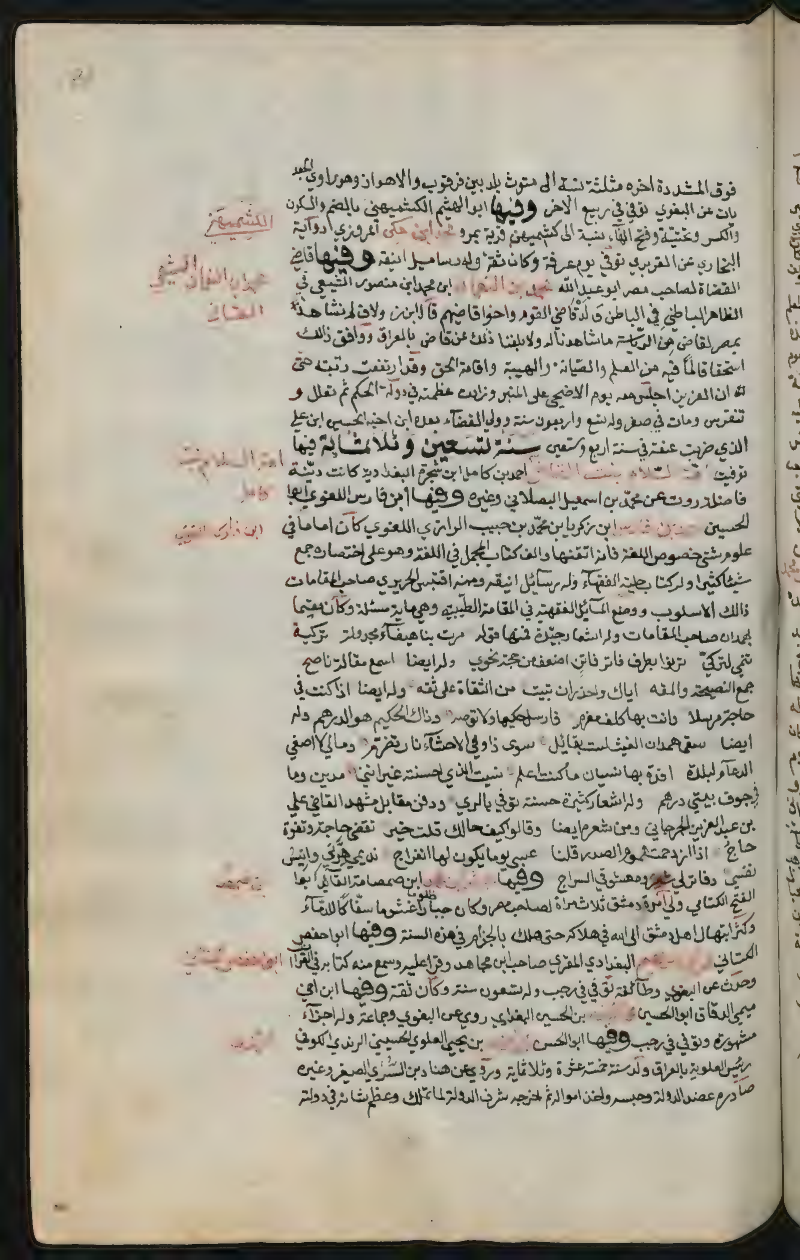 فوق المشددة اخره مثلثة نسبة الى متوث بلد بين قرقوب والاهواز وهو راوي الجعد
يات عن البغوي توفي في ربيع الاخر وفيها ابو الهيثم الكشميهني بالضم والسكون
والكسر وتحتية وفتح الهاء نسبة الى كشميهن قرية بمرو محمد ابن مكي المروزي راوية
البخاري عن الفربري توفي يوم عرفة وكان ثقة وله رسايل انيقة وفيها قاضي
القضاة لصاحب مصر ابو عبد الله محمد بن النعمان بن محمد ابن منصور الشيعي في
الظاهر الباطني في الباطن ولد قاضي القوم واخوا قاضيهم قال ابن زولاق لم نشاهد
بمصر لقاض من الرياسة ما شاهدناله ولا بلغنا ذلك عن قاض بالعراق ووافق ذالك
استحقاقا لما فيه من العلم والصيانة والهيبة واقامة الحق وقد ارتفعت رتبته حتى
ان العزيز اجلسه معه يوم الاضحى على المنبر وزادت عظمته في دولة الحكم ثم تعلل و
تنقرس ومات في صفر وله تسع واربعون سنة وولي القضاء بعده ابن اخيه الحسين ابن علي
الذي ضربت عنقه في سنة اربع وتسعين سنة تسعين وثلاثماية فيها
توفيت امة السلام بنت القاضي احمد بن كامل ابن شجرة البغدادية كانت دينة
فاضلة روت عن محمد بن اسمعيل البصلاني وغيره وفيها ابن فارس اللغوي ابو
الحسين احمد بن فارس ابن زكريا بن محمد بن حبيب الرازي اللغوي كان اماما في
علوم شتى خصوص اللغة فانه اتقنها والف كتاب المجمل في اللغة وهو على اختصاره جمع
شيئا كثيرا وله كتاب حلية الفقهاء وله رسايل انيقه ومنه اقتبس الحريري صاحب المقامات
ذالك الاسلوب ووضع المسايل الفقهية في المقامة الطيبية وهي ماية مسئلة وكان مقيما
بهمدان صاحب المقامات وله اشعار جيدة فمنها قوله مرت بنا هيفاء مجدولة تركية
تنمى لتركي ترنوا بطرف فاتر فاتن اضعف من حجة نحوي وله ايضا اسمع مقالة ناصح
جمع النصيحة والمقه اياك واحذر ان تبيت من الثقاة على ثقه وله ايضا اذا كنت في
حاجة مرسلا وانت بها كلف مغرم فارسل حكيما ولا توصه وذاك الحكيم هو الدرهم وله
ايضا سقى همدان الغيث لست بقايل سوى ذا وفي الاحشاء نار تضرم ومالي لا اصفي
الدعاء لبلدة افدة بها نسيان ما كنت اعلم نسيت الذي احسنته غير انني مدين وما
في جوف بيتي درهم وله اشعار كثيرة حسنة توفي بالري ودفن مقابل مشهد القاضي علي
بن عبد العزيز الجرجاني ومن شعره ايضا وقالوا كيف حالك قلت خير تقضى حاجة وتفوت
حاج اذا ازدحمت هموم الصدر قلنا عسى يوما يكون لها انفراج نديمي هرتي وانيس
نفسي دفاتر لي ومعشوقي السراج وفيها ابن صمصامة القايد ابو
الفتح الكتامي ولي امرة دمشق ثلاث مراة لصاحب مصر وكان جبارا ظلوما غشوما سفاكا للدماء
وكثر ابتهال اهل دمشق الى الله في هلاكه حتى هلك بالجزام في هذه السنة وفيها ابو حفص
الكتاني البغدادي المقري صاحب ابن مجاهد وقرا عليه وسمع منه كتابه في القراات
وحدث عن البغوي وطايفة توفي في رجب وله تسعون سنة وكان ثقة وفيها ابن اخي
ميمي الدقاق ابو الحسين بن الحسين البغدادي روى عن البغوي وجماعة وله اجزاء
مشهورة وتوفي في رجب وفيها ابو الحسن بن يحيى العلوي الحسيني الزيدي الكوفي
رئيس العلوية بالعراق ولد سنة خمسة عشرة وثلاثماية وروى عن هناد بن السري الصغير وغيره
صادره عضد الدولة وحبسه واخذ امواله ثم اخرجه شرف الدولة لما تملك وعظم شانه في دولته
الكشميهني
محمد ابن النعمان الشيعي
امة السلام بنت
كامل
ابن فارس اللغوي
ابو حفص الكتاني